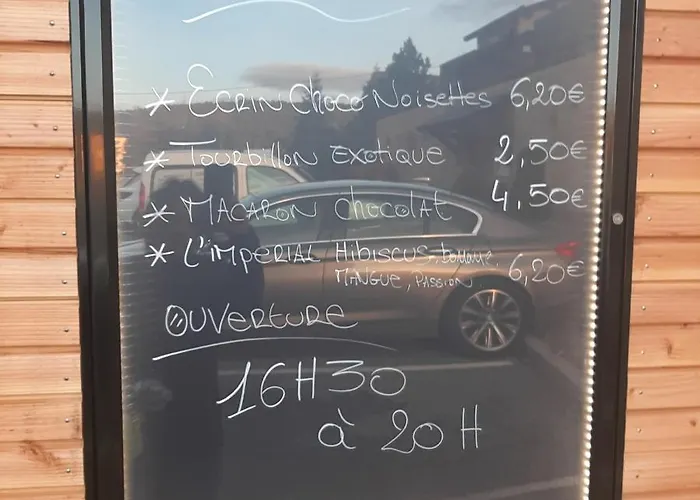 * Ecrin Choco Noisettes 6,20€
* Tourbillon exotique 2,50€
* Macaron chocolat 4,50€
* L'impérial Hibiscus, banane 6,20€
Mangue, Passion
Ouverture
16H30
à 20H